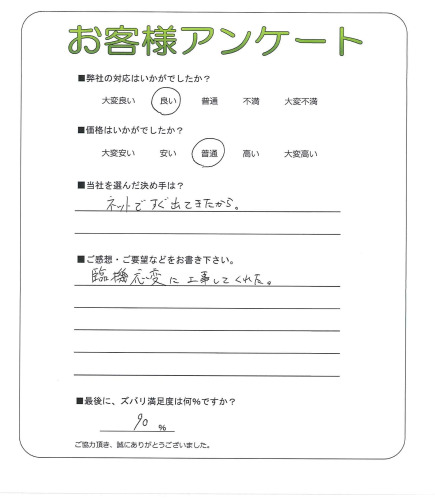 お客様アンケート
■弊社の対応はいかがでしたか？
大変良い 良い 普通 不満 大変不満
■価格はいかがでしたか？
大変安い 安い 普通 高い 大変高い
■当社を選んだ決め手は？
ネットですぐ出てきたから。
■ご感想・ご要望などをお書き下さい。
臨機応変に工事してくれた。
■最後に、ズバリ満足度は何%ですか？
90 %
ご協力頂き、誠にありがとうございました。